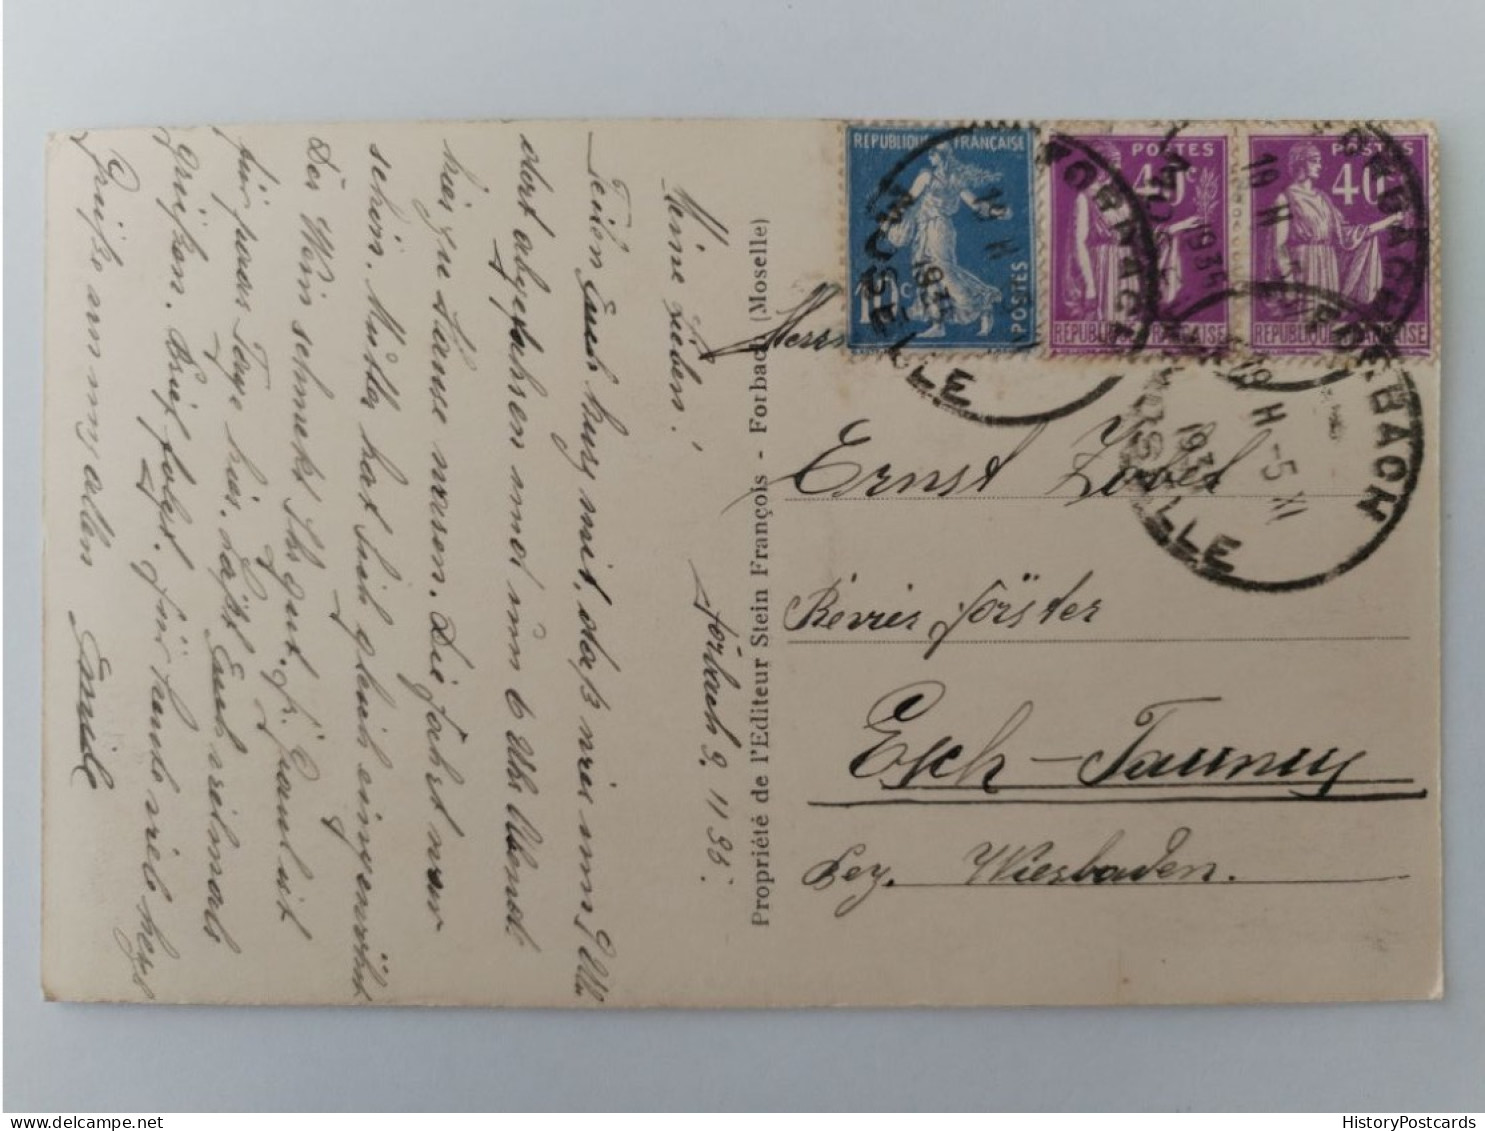 Meine Lieben!
Forbach 9. 11 35.
Teilen Euch kurz mit, daß wir um 9 Uhr
dort abgefahren und um 6 Uhr Abend
hier zu Hause waren. Die Fahrt war
schön. Mutter hat sich gleich eingewöhnt
Der Wein schmeckt Ihr gut. Fr. Paul ist
für paar Tage hier. Laßt Euch vielmals
grüßen. Brief folgt. Für heute viele herzl
Grüße an uns allen
Propriété de l'Editeur Stein François - Forbach (Moselle)
REPUBLIQUE FRANÇAISE
POSTES
POSTES
40c
REPUBLIQUE FRANÇAISE
POSTES
40c
REPUBLIQUE FRANÇAISE
FORBACH
MOSELLE
19 H
1935
FORBACH
MOSELLE
19 H -5 XI
Herrn
Ernst
Revierförster
Esch-Taunus
Bez. Wiesbaden.
HistoryPostcards.com